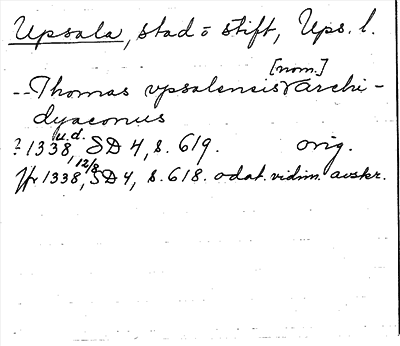 Upsala, stad o stift, Ups. l.
[nom.]
-- Thomas vpsalensis archi-
dyaconus
? 1338 u.d., SD 4, s. 619. orig.
Jfr 1338 12/8, SD 4, s. 618. odat. vidim. avskr.